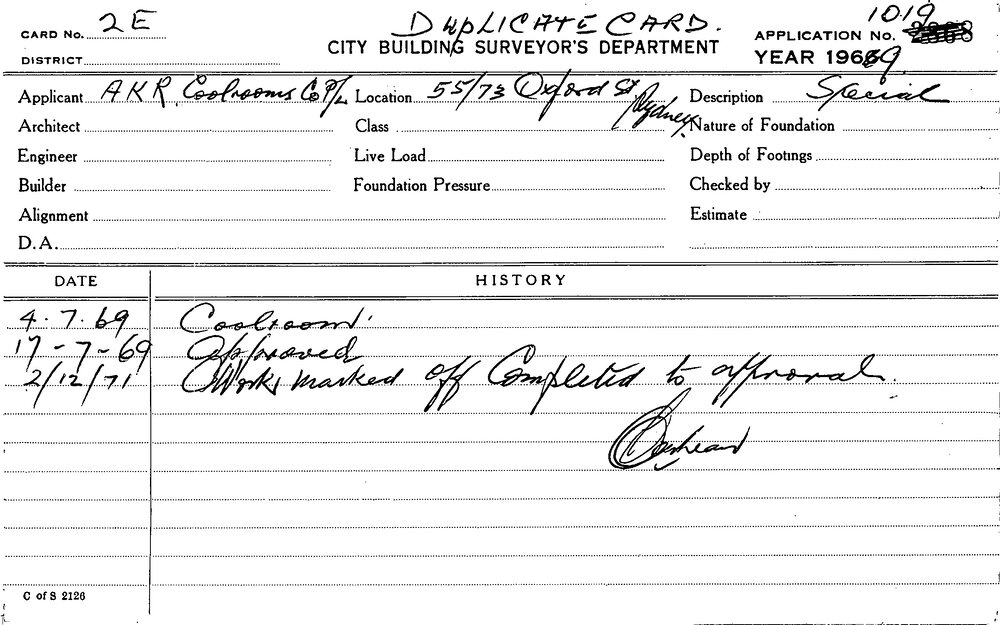 CARD No. 2E
DUPLICATE CARD.
CITY BUILDING SURVEYOR'S DEPARTMENT
1019
APPLICATION No.
YEAR 1969
DISTRICT
Applicant A K R. Coolrooms Co P/L Location 55/73 Oxford St Sydney. Description Special
Architect Class Nature of Foundation
Engineer Live Load Depth of Footings
Builder Foundation Pressure Checked by
Alignment Estimate
D.A.
DATE HISTORY
4.7.69 Coolroom.
17-7-69 Approved
2/12/71 Work marked off Completed to approval.
C of S 2126